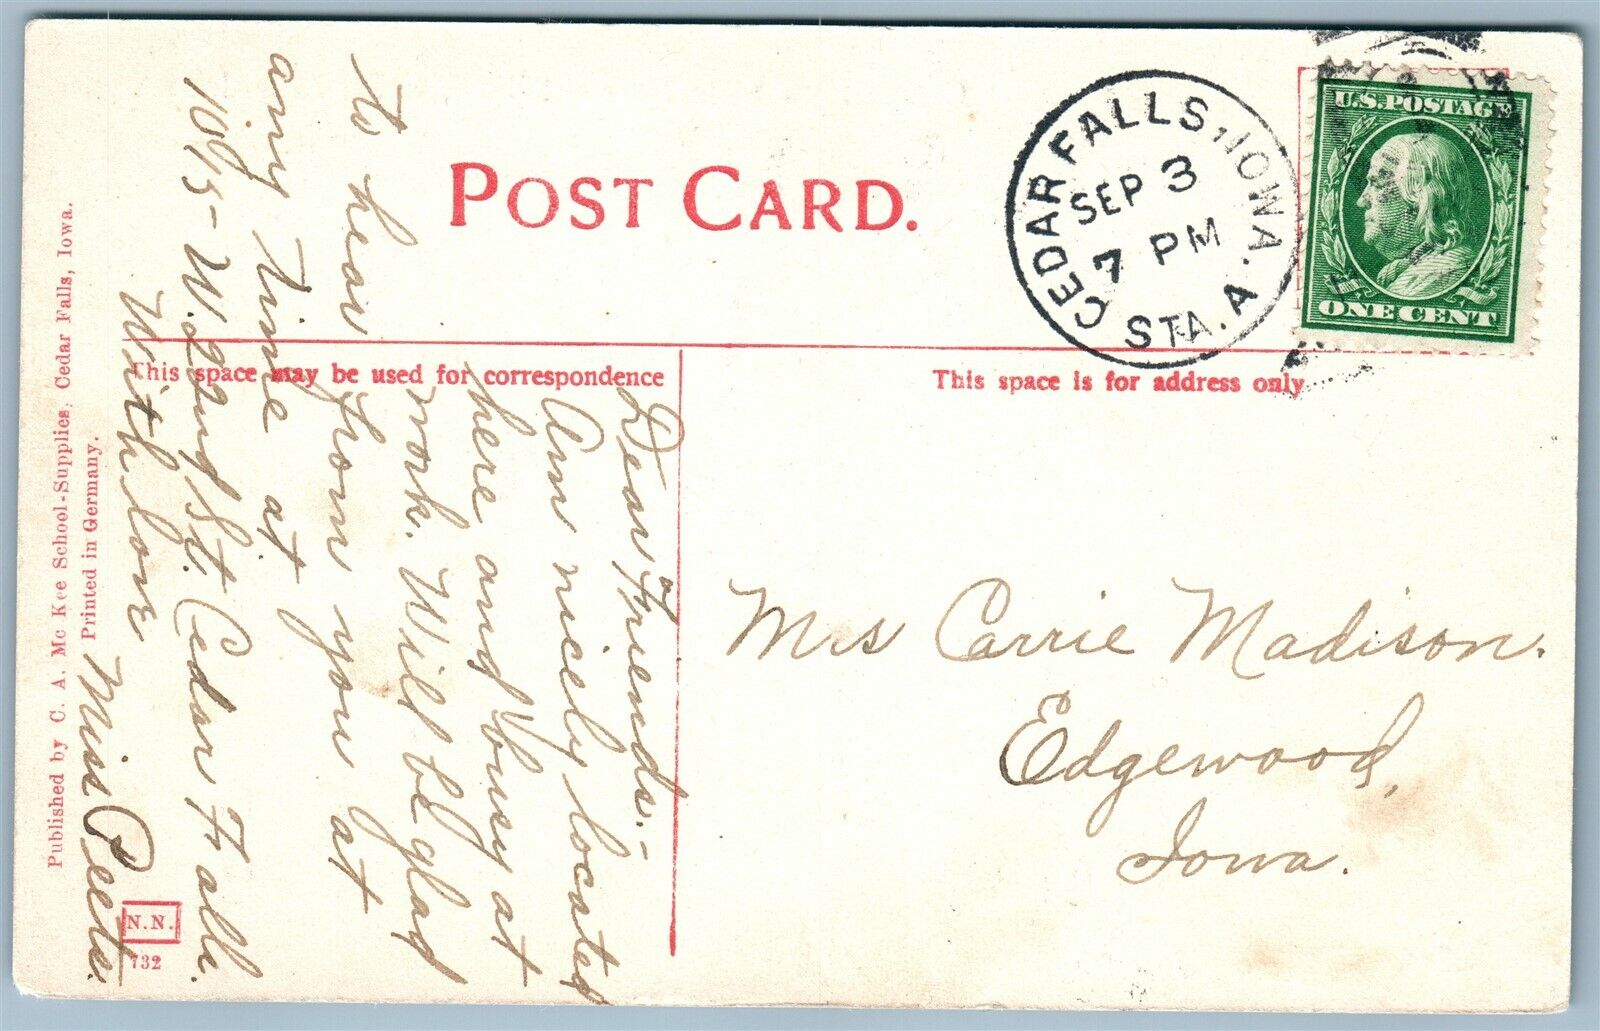 POST CARD.
CEDAR FALLS, IOWA.
SEP 3
7 PM
STA. A
U.S. POSTAGE
ONE CENT
This space may be used for correspondence
This space is for address only
Dear Friends.-
Am nicely located
here and busy at
work. Will be glad
to hear from you at
any time at
1015- W. 22nd St. Cedar Falls.
With love
Miss Peets.
Mrs Carrie Madison.
Edgewood,
Iowa.
Published by C. A. Mc Kee School-Supplies, Cedar Falls, Iowa.
Printed in Germany.
N.N.
732